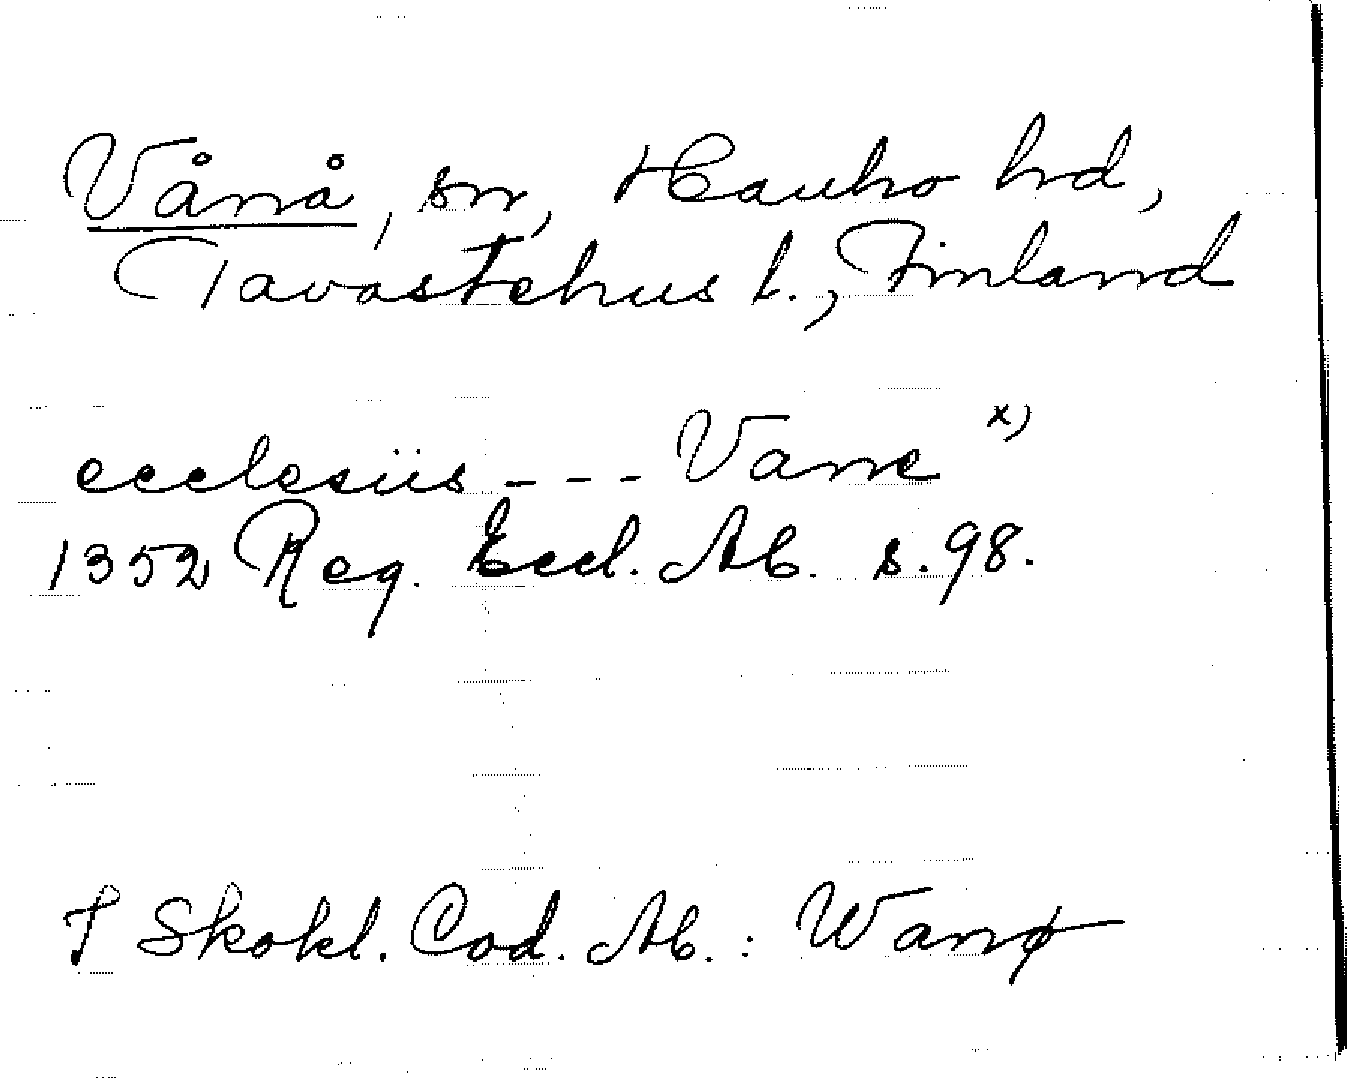 Vånå, sn, Hauho hd,
Tavastehus l., Finland
ecclesiis --- Vane x)
1352 Reg. Eccl. Ab. s. 98.
I Skokl. Cod. Ab. : Wanø